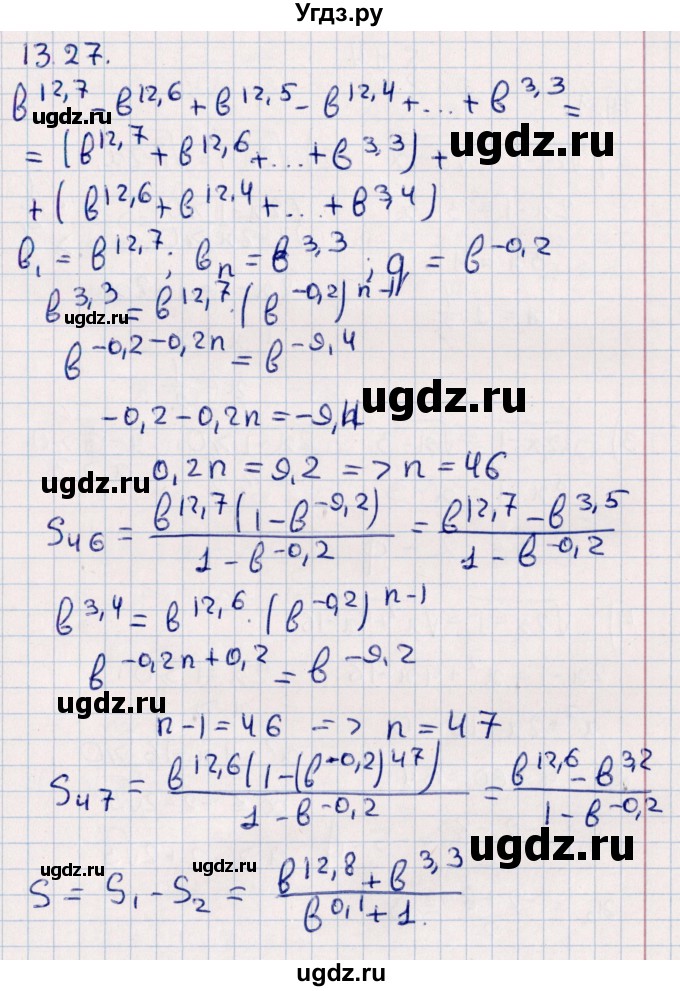 Угдз.ру
13.27.
в^12,7 - в^12,6 + в^12,5 - в^12,4 + ... + в^3,3 =
= (в^12,7 + в^12,6 + ... + в^3,3) +
+ (в^12,6 + в^12,4 + ... + в^3,4)
в₁ = в^12,7; вₙ = в^3,3; q = в^-0,2
в^3,3 = в^12,7 · (в^-0,2)^n-1
в^-0,2-0,2n = в^-9,4
-0,2-0,2n = -9,4
0,2n = 9,2 => n = 46
S₄₆ = в^12,7(1-в^-9,2) / 1-в^-0,2 = в^12,7 - в^3,5 / 1-в^-0,2
в^3,4 = в^12,6 · (в^-0,2)^n-1
в^-0,2n+0,2 = в^-9,2
n-1 = 46 => n = 47
S₄₇ = в^12,6(1-(в^-0,2)^47) / 1-в^-0,2 = в^12,6 - в^3,2 / 1-в^-0,2
S = S₁ - S₂ = в^12,8 + в^3,3 / в^0,1 + 1.
ugdz.ru
ugdz.ru
ugdz.ru
ugdz.ru
ugdz.ru
ugdz.ru
ugdz.ru
ugdz.ru
ugdz.ru
ugdz.ru
ugdz.ru
ugdz.ru
ugdz.ru